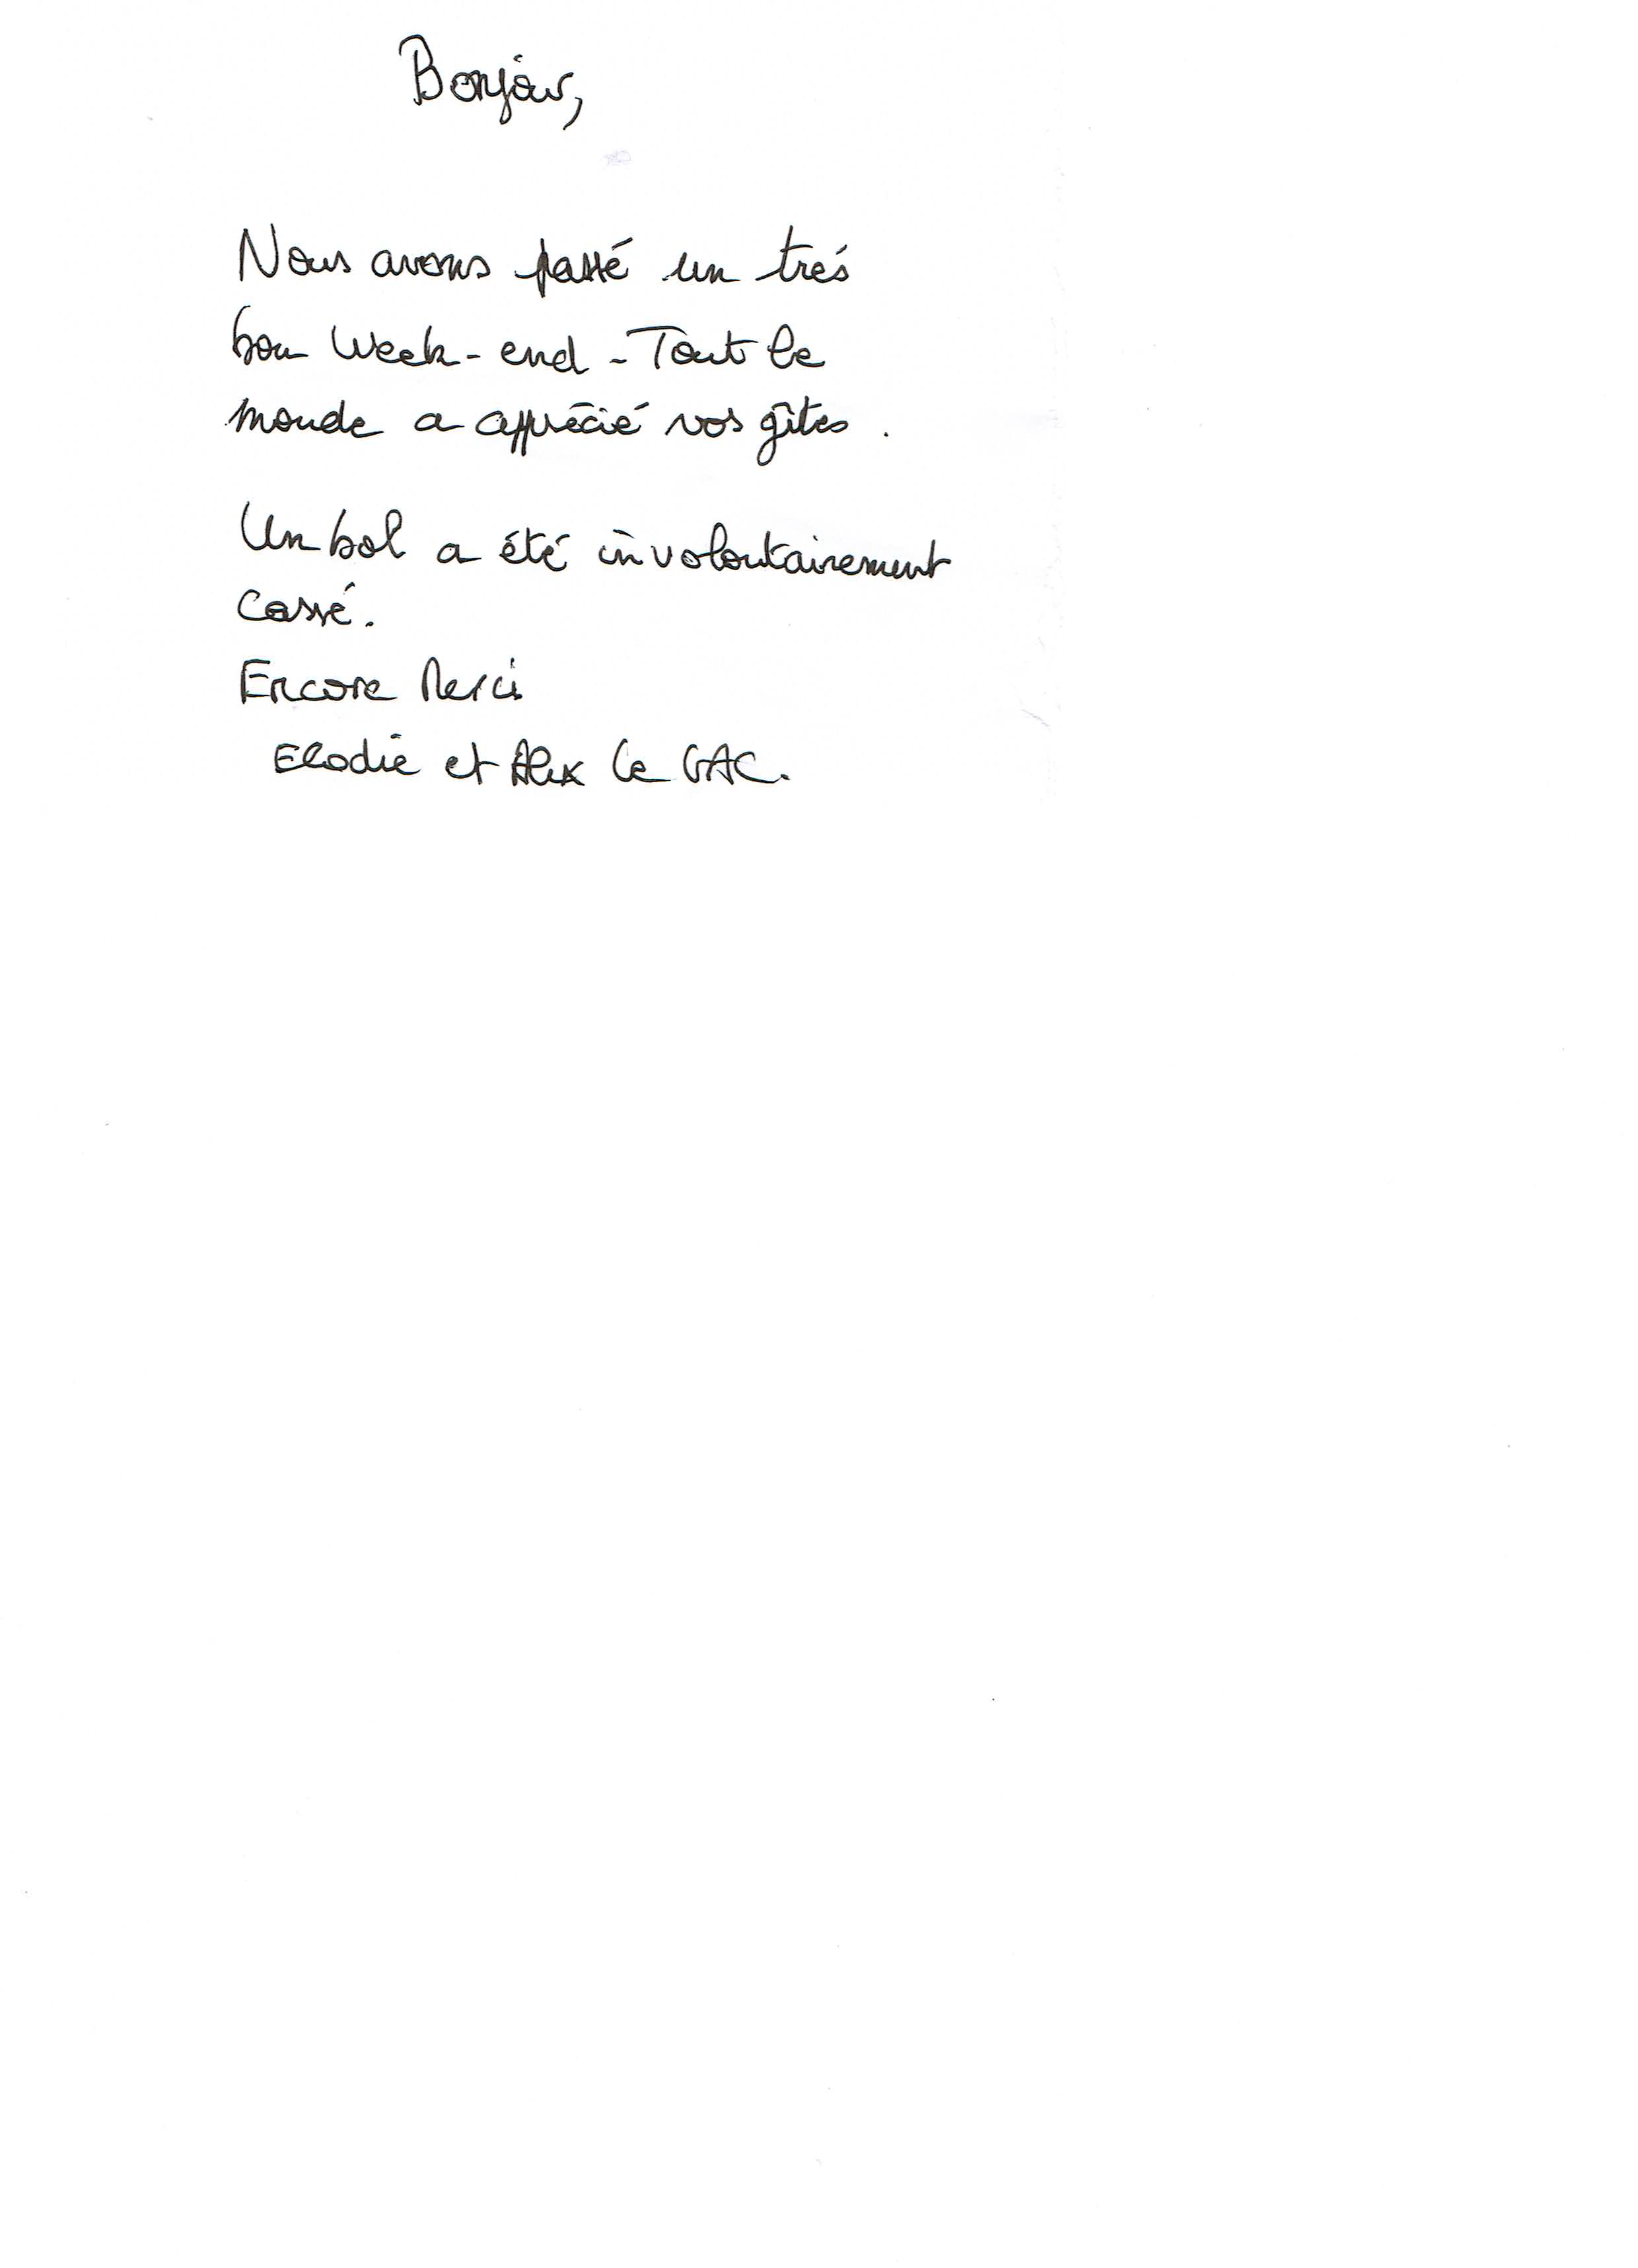 Bonjour,
Nous avons passé un trés
bon Week-end - Tout le
monde a apprécié vos gîtes.
Un bol a été involontairement
cassé.
Encore Merci
Elodie et Alex Le GAC.